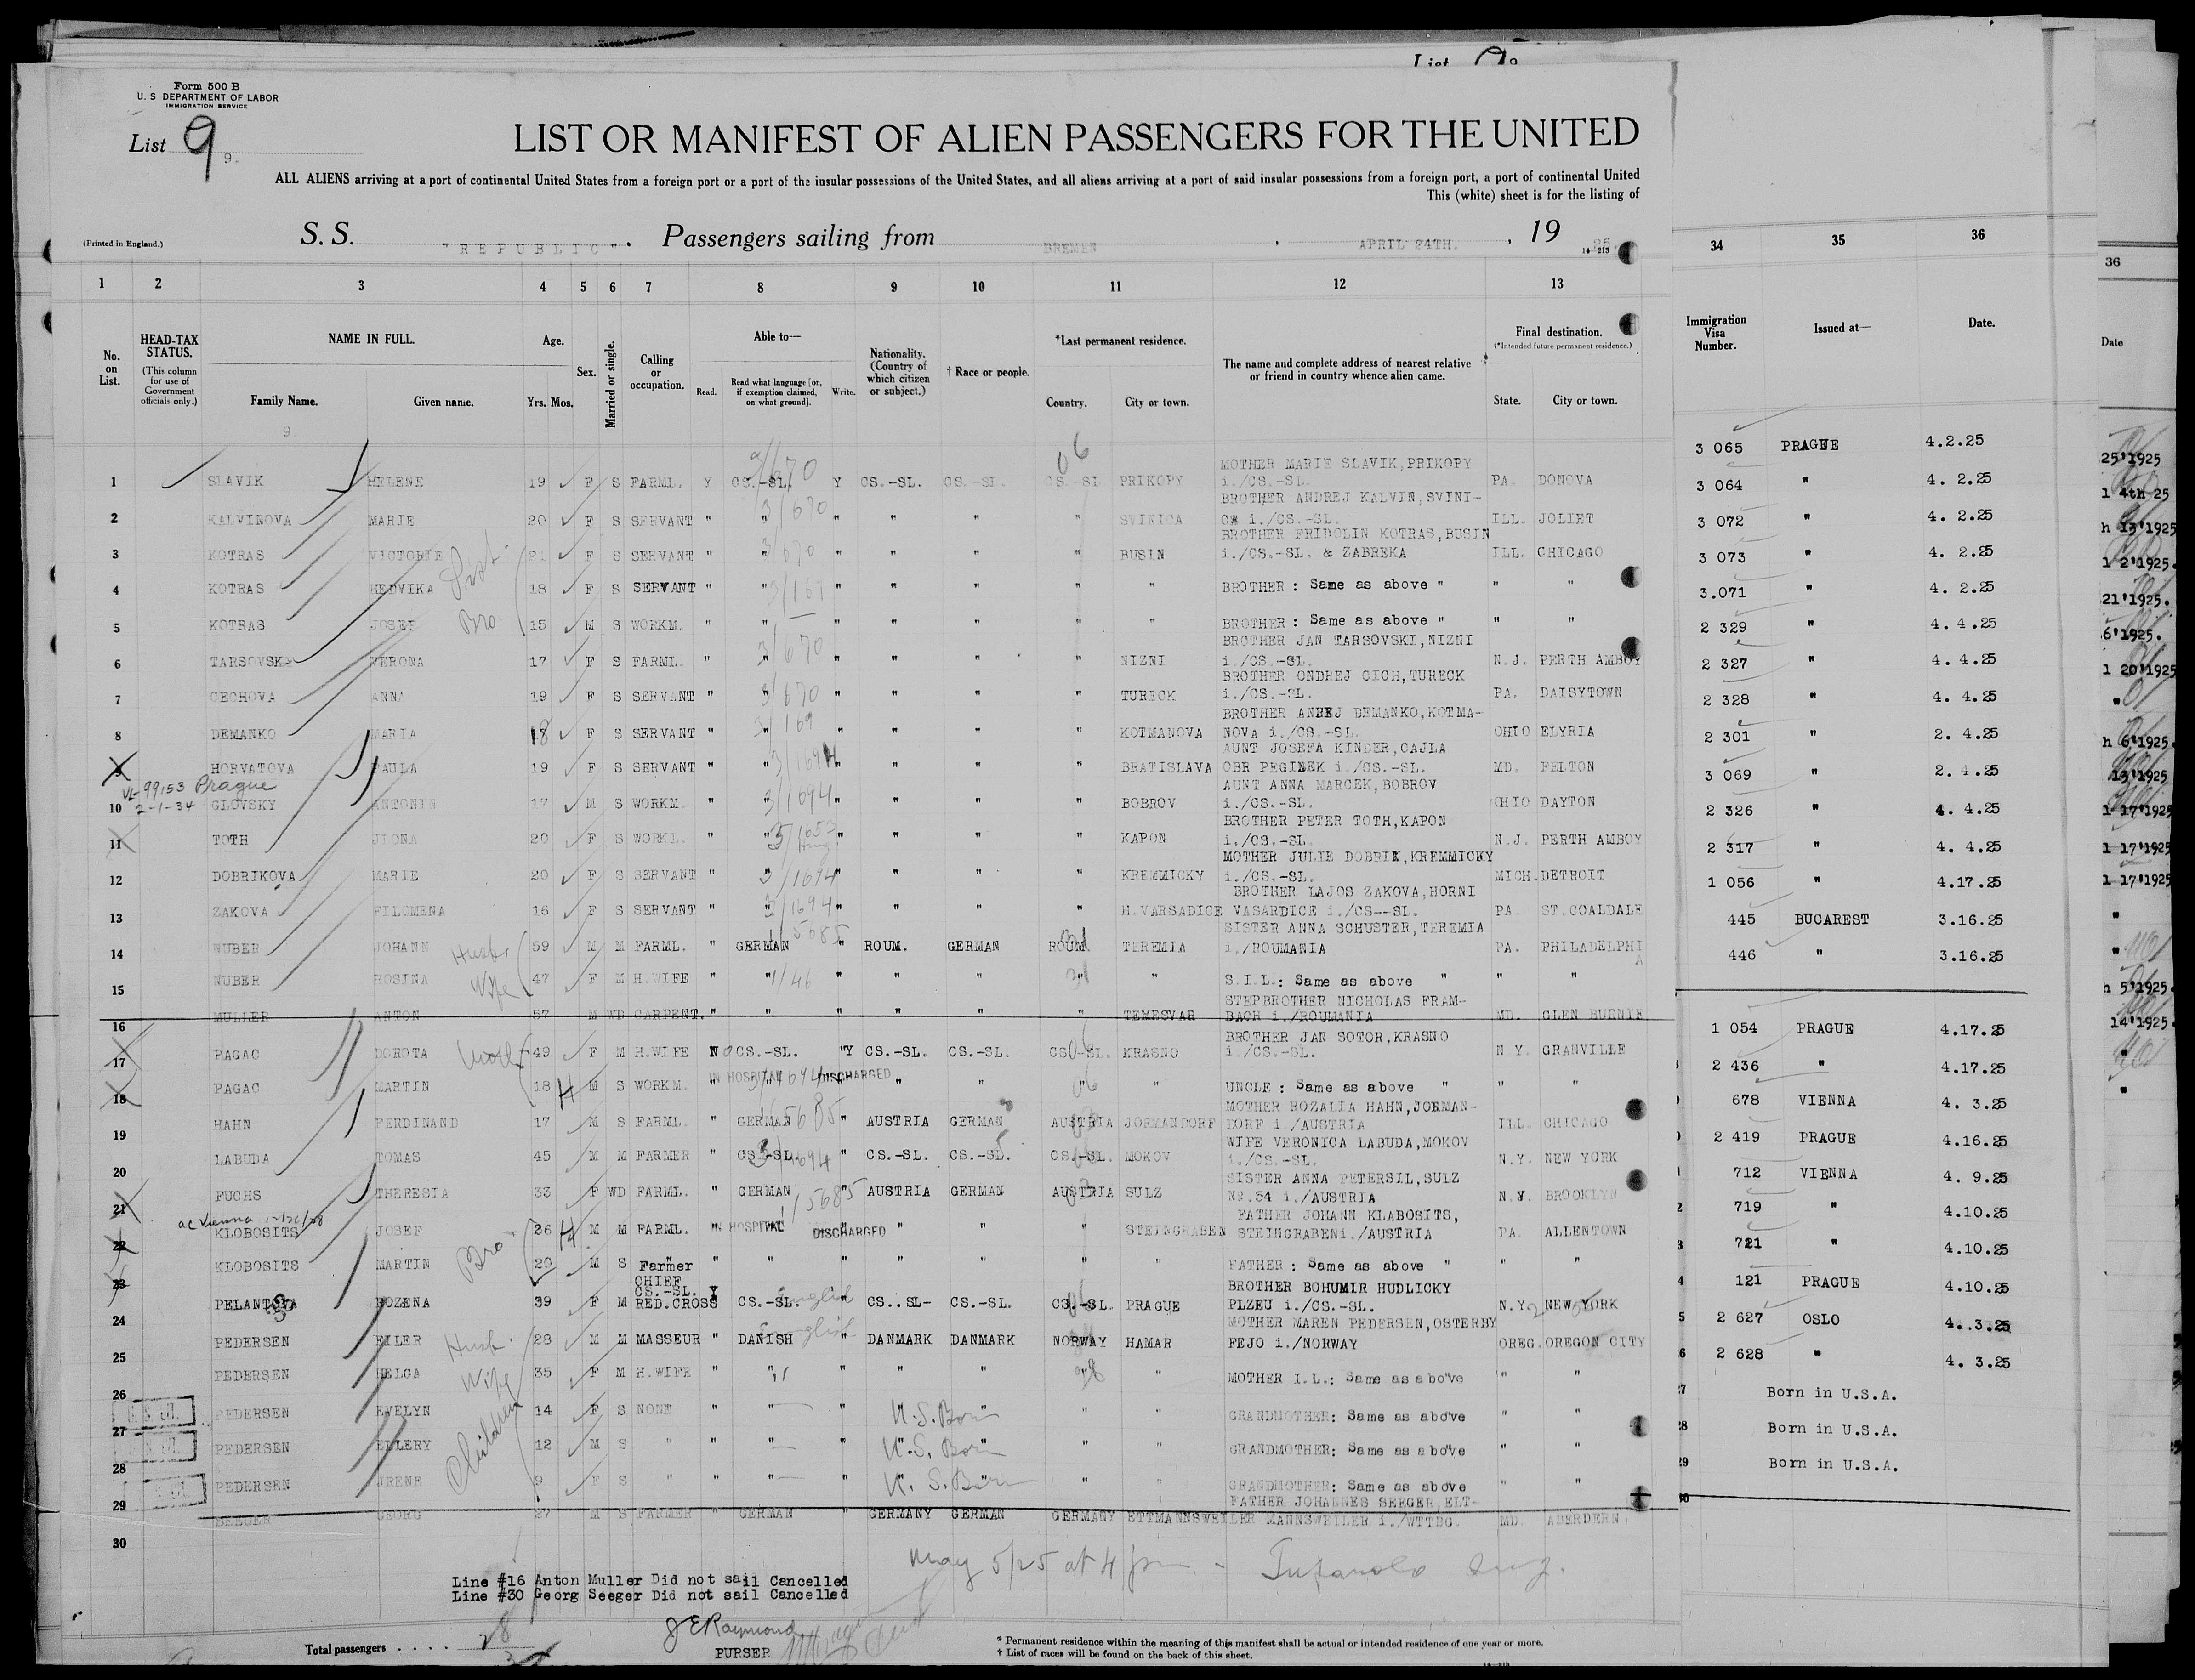 List
Form 500 B
U. S DEPARTMENT OF LABOR
IMMIGRATION SERVICE
List 9 9.
LIST OR MANIFEST OF ALIEN PASSENGERS FOR THE UNITED
ALL ALIENS arriving at a port of continental United States from a foreign port or a port of the insular possessions of the United States, and all aliens arriving at a port of said insular possessions from a foreign port, a port of continental United
This (white) sheet is for the listing of
(Printed in England.) S. S. "REPUBLIC". Passengers sailing from BREMEN, APRIL 24TH., 19 25.
1 2 3 4 5 6 7 8 9 10 11 12 13 34 35 36
No. on List. HEAD-TAX STATUS. (This column for use of Government officials only.) NAME IN FULL. Family Name. Given name. Age. Yrs. Mos. Sex. Married or single. Calling or occupation. Able to— Read. Read what language [or, if exemption claimed, on what ground]. Write. Nationality. (Country of which citizen or subject.) † Race or people. *Last permanent residence. Country. City or town. The name and complete address of nearest relative or friend in country whence alien came. Final destination. (*Intended future permanent residence.) State. City or town. Immigration Visa Number. Issued at— Date.
9
3 065 PRAGUE 4.2.25
MOTHER MARIE SLAVIK,PRIKOPY
1 SLAVIK HELENE 19 F S FARML. Y CS.-SL. Y CS.-SL. CS.-SL. CS.-SL PRIKOPY i./CS.-SL. PA. DONOVA 3 064 " 4. 2.25
BROTHER ANDREJ KALVIN,SVINI-
2 KALVINOVA MARIE 20 F S SERVANT " " " " " " SVINICA i./CS.-SL. ILL. JOLIET 3 072 " 4. 2.25
BROTHER FRIDOLIN KOTRAS,BUSIN
3 KOTRAS VICTORIE 21 F S SERVANT " " " " " " BUSIN i./CS.-SL. & ZABREKA ILL. CHICAGO 3 073 " 4. 2.25
4 KOTRAS HEDVIKA 18 F S SERVANT " " " " " " " BROTHER: Same as above " " " 3.071 " 4. 2.25
5 KOTRAS JOSEF Bro. 15 M S WORKM. " " " " " " " BROTHER: Same as above " " " 2 329 " 4. 4.25
BROTHER JAN TARSOVSKI,NIZNI
6 TARSOVSKA VERONA 17 F S FARML. " " " " " " NIZNI i./CS.-SL. N.J. PERTH AMBOY 2 327 " 4. 4.25
BROTHER ONDREJ CICH,TURECK
7 CECHOVA ANNA 19 F S SERVANT " " " " " " TURECK i./CS.-SL. PA. DAISYTOWN 2 328 " 4. 4.25
DEMANKO,KOTMA-
8 DEMANKO MARIA 18 F S SERVANT " " " " " " KOTMANOVA NOVA i./CS.-SL. OHIO ELYRIA 2 301 " 2. 4.25
AUNT JOSEFA KINDER,CAJLA
9 HORVATOVA PAULA 19 F S SERVANT " " " " " " BRATISLAVA OBR PEGINEK i./CS.-SL. MD. FELTON 3 069 " 2. 4.25
99153 Prague
2-1-34
AUNT ANNA MARCEK,BOBROV
10 GLOVSKY ANTONIN 17 M S WORKM. " " " " " " BOBROV i./CS.-SL. OHIO DAYTON 2 326 " 4. 4.25
BROTHER PETER TOTH,KAPON
11 TOTH JLONA 20 F S WORKL. " " " " " " KAPON i./CS.-SL. N.J. PERTH AMBOY 2 317 " 4. 4.25
MOTHER JULIE DOBRIK,KREMMICKY
12 DOBRIKOVA MARIE 20 F S SERVANT " " " " " " KREMMICKY i./CS.-SL. MICH. DETROIT 1 056 " 4.17.25
BROTHER LAJOS ZAKOVA,HORNI
13 ZAKOVA FILOMENA 16 F S SERVANT " " " " " " H.VARSADICE VASARDICE i./CS--SL. PA. ST.COALDALE 445 BUCAREST 3.16.25
SISTER ANNA SCHUSTER,TEREMIA
14 NUBER JOHANN 59 M M FARML. " GERMAN " ROUM. GERMAN ROUM. TEREMIA i./ROUMANIA PA. PHILADELPHIA 446 " 3.16.25
15 NUBER ROSINA Wife 47 F M H.WIFE " " " " " " " S.I.L.: Same as above " " "
STEPBROTHER NICHOLAS FRAM-
16 MULLER ANTON 57 M WD CARPENT. " " " " " " TEMESVAR BACH i./ROUMANIA MD. GLEN BURNIE 1 054 PRAGUE 4.17.25
BROTHER JAN SOTOR,KRASNO
17 PAGAC DOROTA 49 F M H.WIFE NO CS.-SL. "Y CS.-SL. CS.-SL. CS.-SL. KRASNO i./CS.-SL. N Y. GRANVILLE 2 436 " 4.17.25
IN HOSPITAL DISCHARGED
18 PAGAC MARTIN 18 M S WORKM. " " " " UNCLE: Same as above " " " 678 VIENNA 4. 3.25
MOTHER ROZALIA HAHN,JORMAN-
19 HAHN FERDINAND 17 M S FARML. " GERMAN " AUSTRIA GERMAN AUSTRIA JORMANDORF DORF i./AUSTRIA ILL. CHICAGO 2 419 PRAGUE 4.16.25
WIFE VERONICA LABUDA,MOKOV
20 LABUDA TOMAS 45 M M FARMER " CS.-SL. " CS.-SL. CS.-SL. CS.-SL. MOKOV i./CS.-SL. N.Y. NEW YORK 712 VIENNA 4. 9.25
SISTER ANNA PETERSIL,SULZ
21 FUCHS THERESIA 33 F WD FARML. " GERMAN " AUSTRIA GERMAN AUSTRIA SULZ NO.54 i./AUSTRIA N.Y. BROOKLYN 719 " 4.10.25
FATHER JOHANN KLABOSITS,
22 KLOBOSITS JOSEF 26 M M FARML. IN HOSPITAL DISCHARGED " " STEINGRABEN STEINGRABENi./AUSTRIA PA. ALLENTOWN 721 " 4.10.25
23 KLOBOSITS MARTIN Bro. 20 M S Farmer " " " " " " " FATHER: Same as above " " " 121 PRAGUE 4.10.25
CHIEF CS.-SL. BROTHER BOHUMIR HUDLICKY
24 BOZENA 39 F M RED.CROSS Y CS.-SL. English CS..SL- CS.-SL. CS.-SL. PRAGUE PLZEU i./CS.-SL. N.Y. NEW YORK 2 627 OSLO 4..3.25
MOTHER MAREN PEDERSEN,OSTERBY
25 PEDERSEN EILER Husb. 28 M M MASSEUR " DANISH English " DANMARK DANMARK NORWAY HAMAR FEJO i./NORWAY OREG. OREGON CITY 2 628 " 4. 3.25
26 PEDERSEN HELGA Wife 35 F M H.WIFE " " " " " " " MOTHER I.L.: Same as above " "
27 PEDERSEN EVELYN Children 14 F S NONE " " " U.S. Born " " GRANDMOTHER: Same as above " " Born in U.S.A.
28 PEDERSEN ELLERY 12 M S " " " " U.S. Born " " GRANDMOTHER: Same as above " " Born in U.S.A.
29 PEDERSEN IRENE 9 F S " " " " U.S. Born " " GRANDMOTHER: Same as above " " Born in U.S.A.
FATHER JOHANNES SEEGER,ELT-
30 SEEGER GEORG 27 M S FARMER " GERMAN " GERMANY GERMAN GERMANY ETTMANNSWEILER MANNSWEILER i./WTTBG. MD. ABERDERN
May 5/25 at 4 pm -
Line #16 Anton Muller Did not sail Cancelled
Line #30 Georg Seeger Did not sail Cancelled
J E Raymond
PURSER
Total passengers . . . . 28
* Permanent residence within the meaning of this manifest shall be actual or intended residence of one year or more.
† List of races will be found on the back of this sheet.
36
Date
25'1925
1 4th 25
h 13'1925
1 2'1925.
21'1925.
6'1925.
1 20'1925
h 6'1925.
13'1925
1 17'1925
1 17'1925
1 17'1925
h 5'1925.
14'1925.